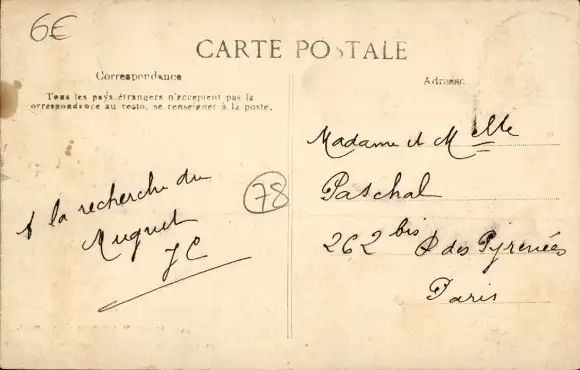 6€
CARTE POSTALE
Correspondance
Tous les pays étrangers n'acceptent pas la
correspondance au recto, se renseigner à la poste.
Adresse
A la recherche du
Muguet
JC
78
Madame et Melle
Paschal
262 bis R des Pyrenées
Paris